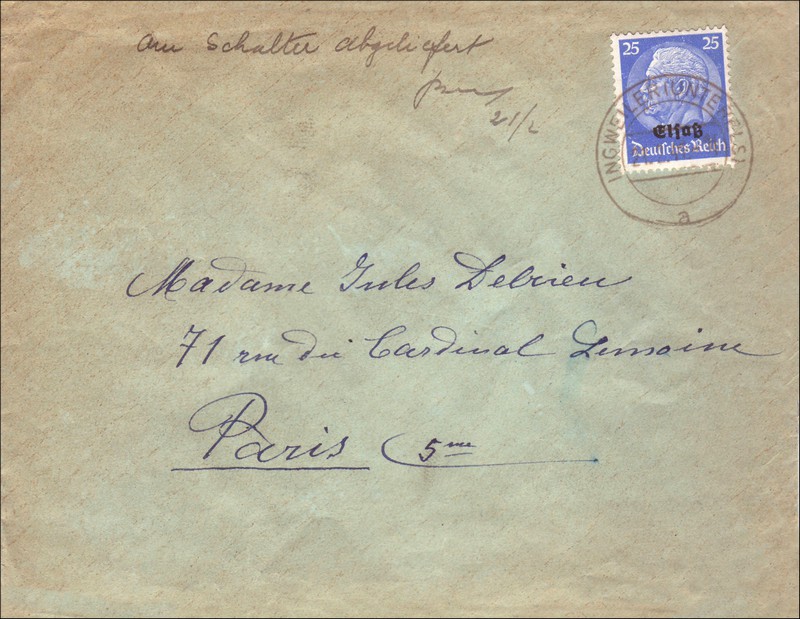 Am Schalter abgeliefert
21/2
25 25
Elsaß
Deutsches Reich
INGWEILER (UNTERELS)
a
Madame Jules Debrieu
71 rue du Cardinal Lemoine
Paris 5me